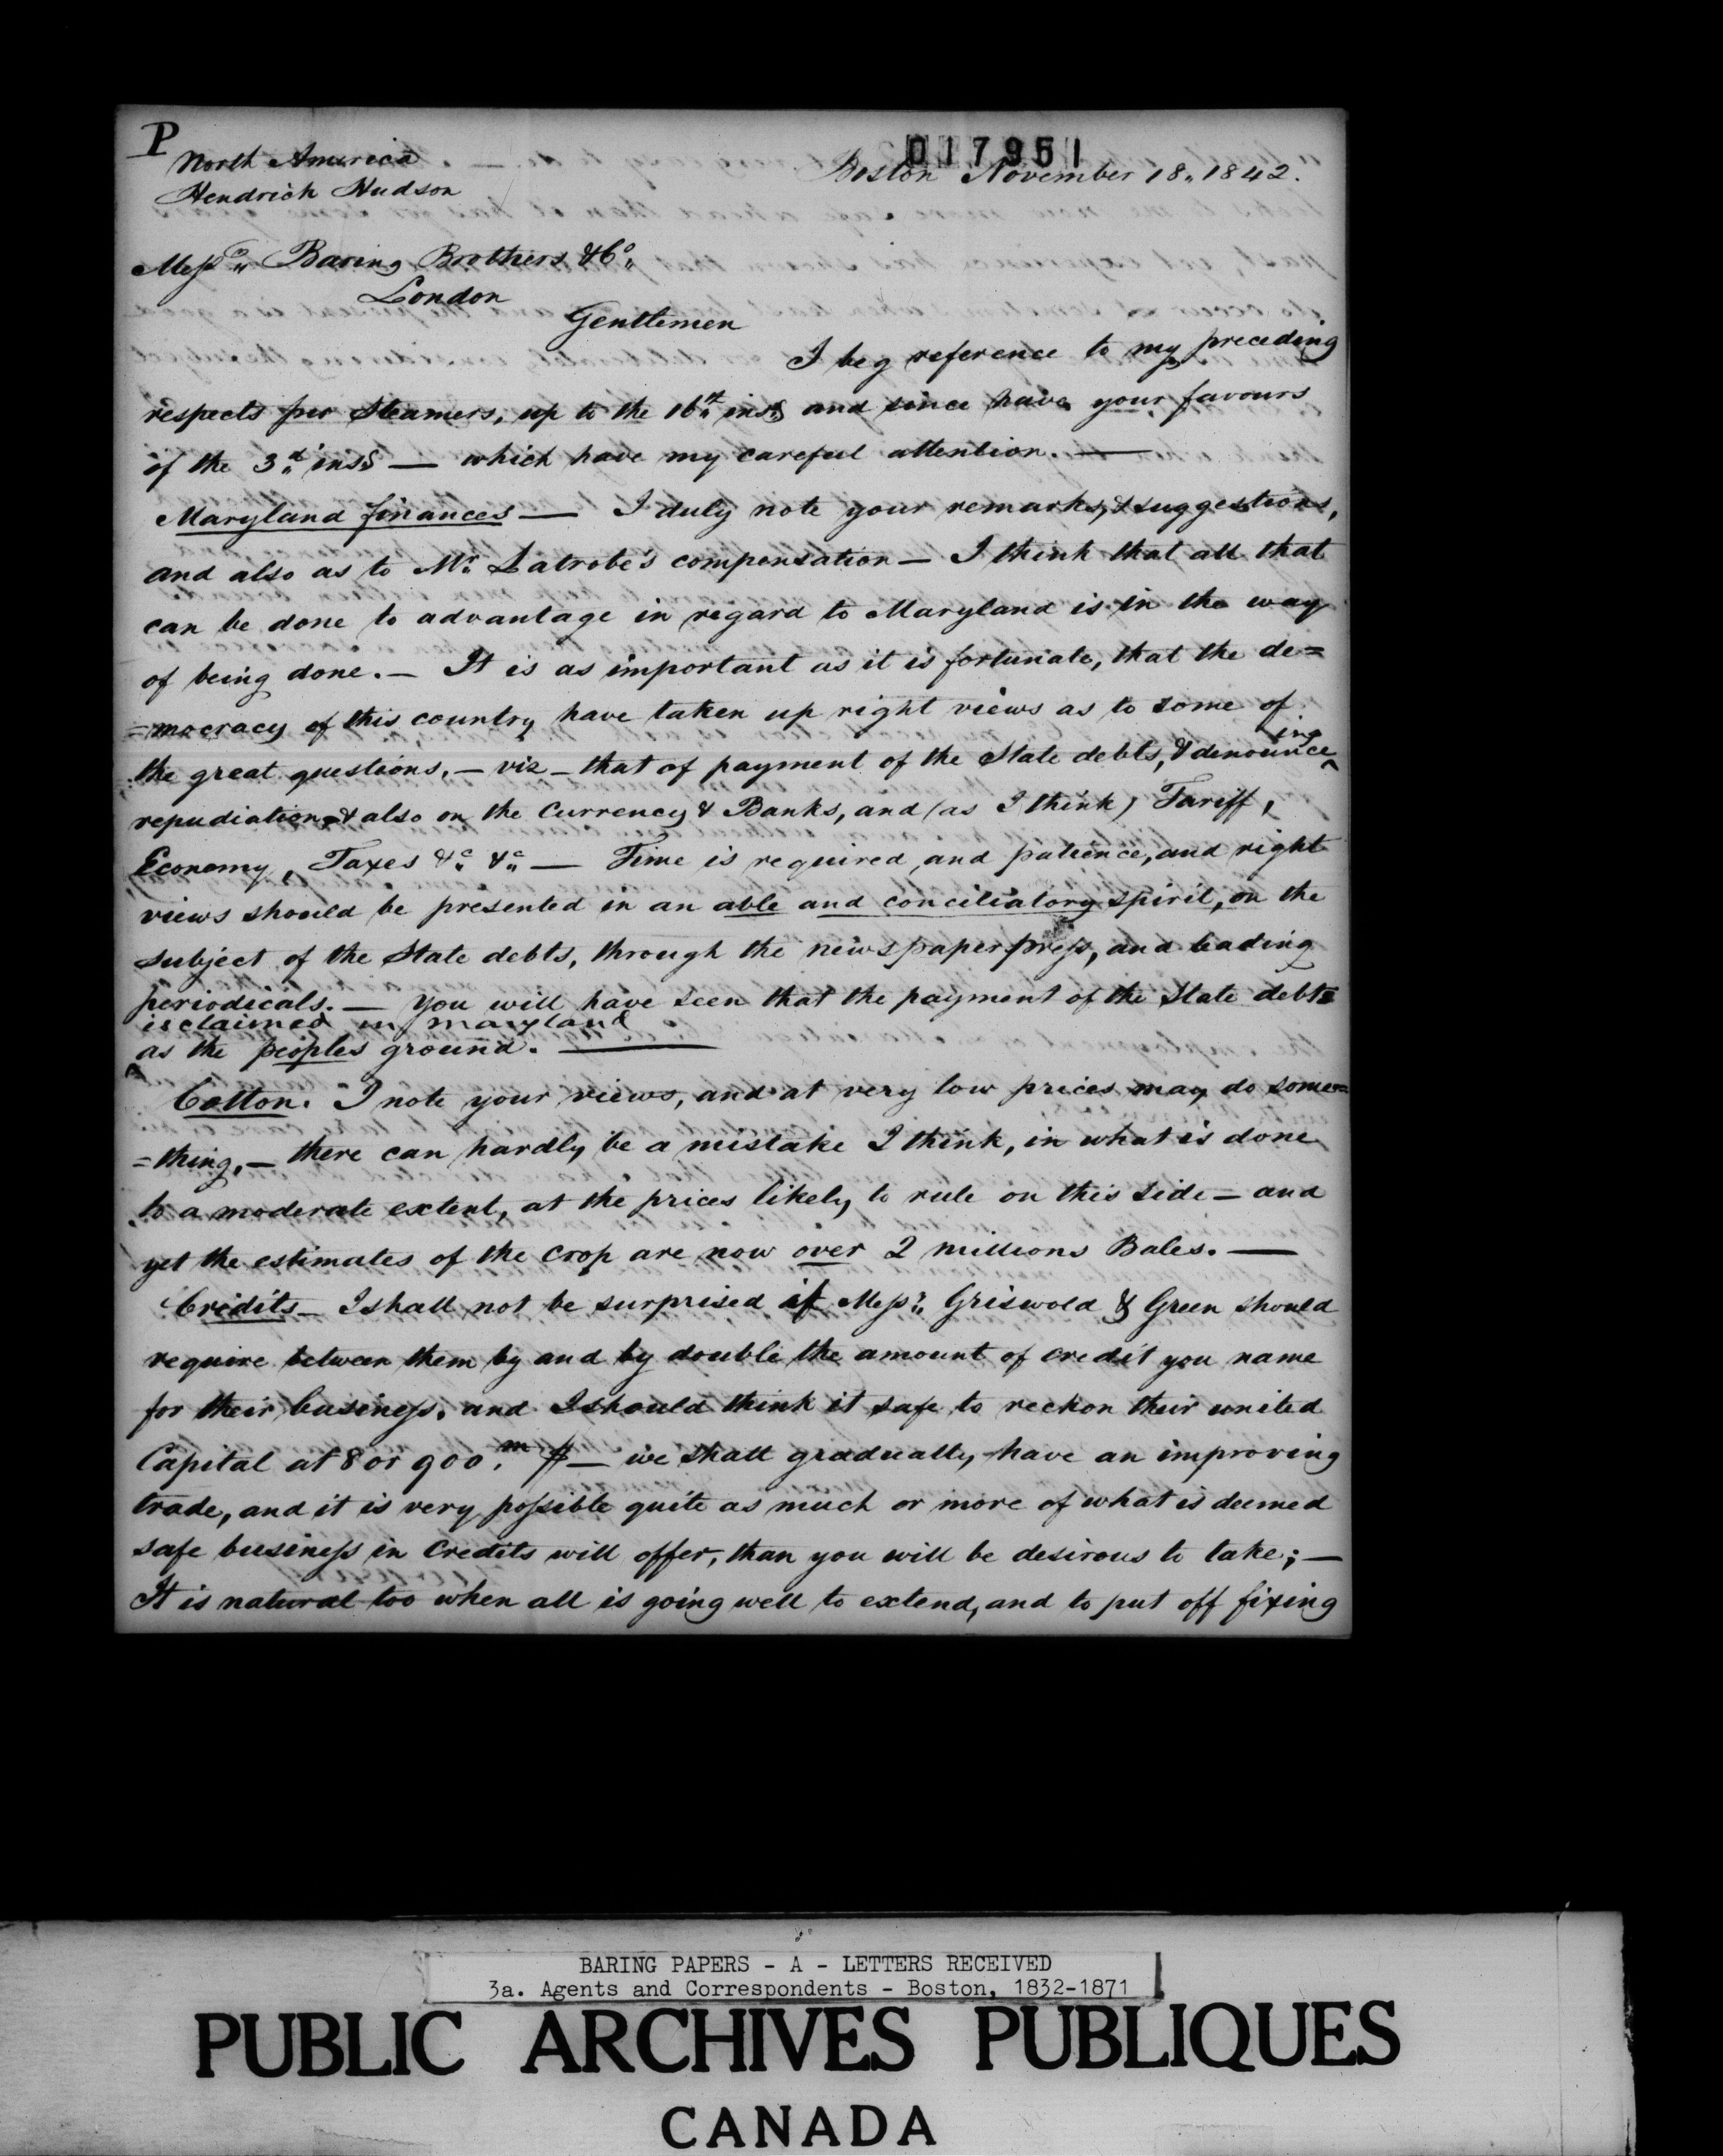 P
North America
Hendrick Hudson
017951
Boston November 18. 1842.
Messrs Baring Brothers & Co
London
Gentlemen
I beg reference to my preceding
respects per Steamers, up to the 16th inst and since have your favours
of the 3d inst — which have my careful attention. —
Maryland finances — I duly note your remarks, & suggestions,
and also as to Mr. Latrobe's compensation — I think that all that
can be done to advantage in regard to Maryland is in the way
of being done. — It is as important as it is fortunate, that the de=
=mocracy of this country have taken up right views as to some of
the great questions, — viz — that of payment of the State debts, & denouncing
repudiation & also on the Currency & Banks, and (as I think) Tariff,
Economy, Taxes &c. &c. — Time is required, and patience, and right
views should be presented in an able and conciliatory spirit, on the
subject of the State debts, through the newspaper press, and leading
periodicals. — You will have seen that the payment of the State debts
is claimed in Maryland
as the peoples ground. —
Cotton. I note your views, and at very low prices may do some=
=thing, — there can hardly be a mistake I think, in what is done
to a moderate extent, at the prices likely to rule on this side — and
yet the estimates of the crop are now over 2 millions Bales. —
Credits — I shall not be surprised if Messrs Griswold & Green should
require between them by and by double the amount of credit you name
for their business, and I should think it safe to reckon their united
Capital at 8 or 900.m $ — we shall gradually have an improving
trade, and it is very possible quite as much or more of what is deemed
safe business in Credits will offer, than you will be desirous to take; —
It is natural too when all is going well to extend, and to put off fixing
BARING PAPERS - A - LETTERS RECEIVED
3a. Agents and Correspondents - Boston, 1832-1871
PUBLIC ARCHIVES PUBLIQUES
CANADA